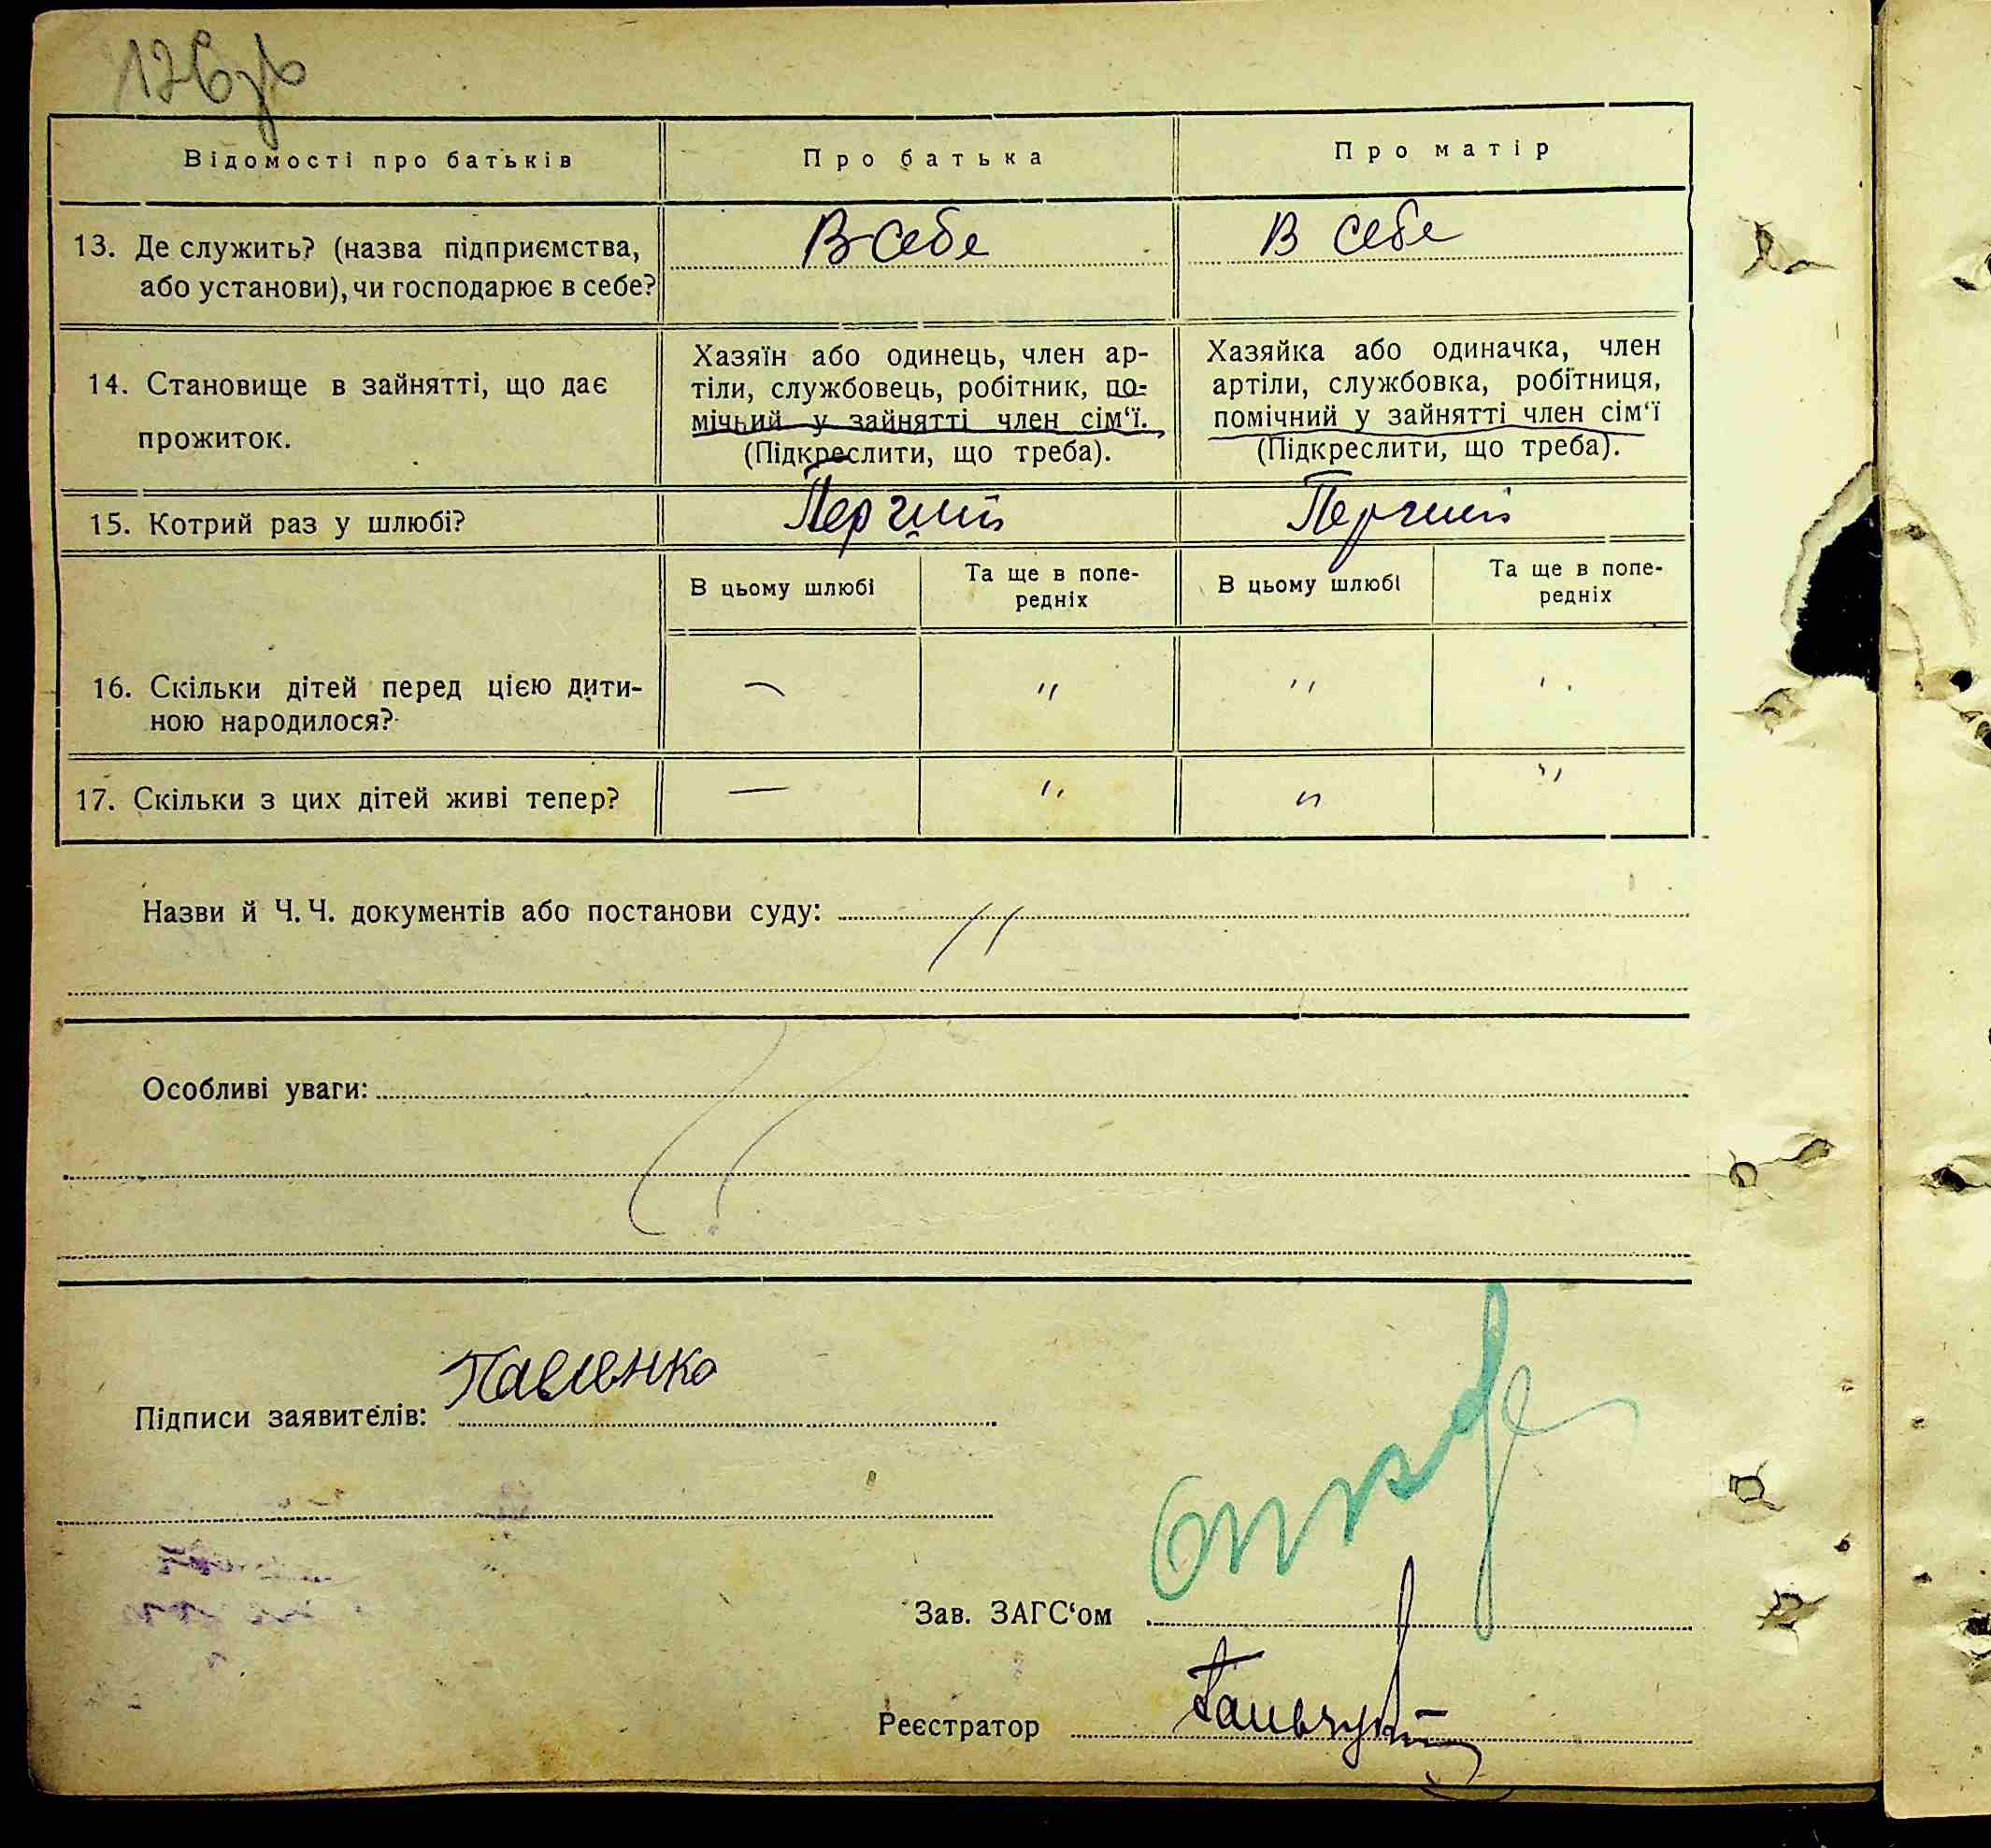 126зв
Відомості про батьків
Про батька
Про матір
13. Де служить? (назва підприємства,
або установи), чи господарює в себе?
В себе
В себе
14. Становище в зайнятті, що дає
прожиток.
Хазяїн або одинець, член ар-
тіли, службовець, робітник, по-
мічний у зайнятті член сім‘ї.
(Підкреслити, що треба).
Хазяйка або одиначка, член
артіли, службовка, робітниця,
помічний у зайнятті член сім‘ї
(Підкреслити, що треба).
15. Котрий раз у шлюбі?
Перший
Перший
В цьому шлюбі
Та ще в попе-
редніх
В цьому шлюбі
Та ще в попе-
редніх
16. Скільки дітей перед цією дити-
ною народилося?
— " " "
17. Скільки з цих дітей живі тепер?
— " " "
Назви й Ч. Ч. документів або постанови суду:
Особливі уваги:
Підписи заявителів: Павленко
Зав. ЗАГС‘ом
Реєстратор